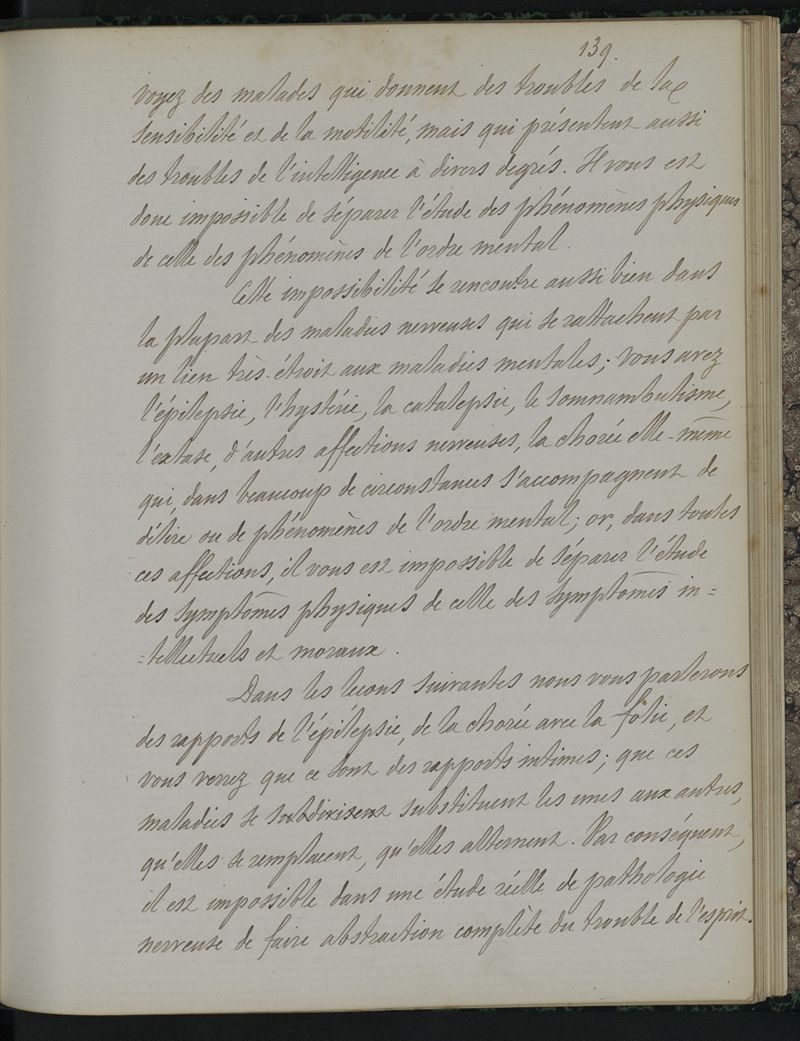 139.
voyez des malades qui donnent des troubles de la
sensibilité et de la motilité, mais qui présentent aussi
des troubles de l'intelligence à divers degrés. Il vous est
donc impossible de séparer l'étude des phénomènes physiques
de celle des phénomènes de l'ordre mental.
Cette impossibilité se rencontre aussi bien dans
la plupart des maladies nerveuses qui se rattachent par
un lien très-étroit aux maladies mentales; vous avez
l'épilepsie, l'hystérie, la catalepsie, le somnambulisme,
l'extase, d'autres affections nerveuses, la chorée elle-même
qui, dans beaucoup de circonstances s'accompagnent de
délire ou de phénomènes de l'ordre mental; or, dans toutes
ces affections, il vous est impossible de séparer l'étude
des symptômes physiques de celle des symptômes in=
=tellectuels et moraux.
Dans les leçons suivantes nous vous parlerons
des rapports de l'épilepsie, de la chorée avec la folie, et
vous verrez que ce sont des rapports intimes; que ces
maladies se subdivisent substituent les unes aux autres,
qu'elles se remplacent, qu'elles alternent. Par conséquent,
il est impossible dans une étude réelle de pathologie
nerveuse de faire abstraction complète du trouble de l'esprit.